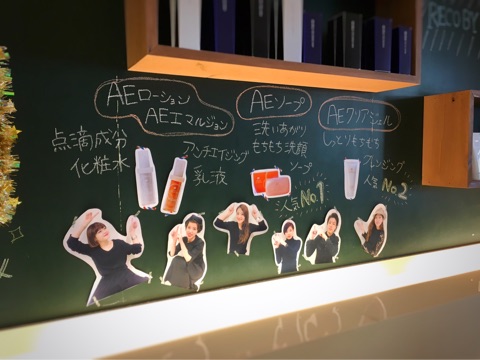 RECO BY
AEローション
AEエマルジョン
点滴成分
化粧水
アンチエイジング
乳液
AEソープ
洗いあがり
もちもち洗顔
ソープ
人気No.1
AEクリアジェル
しっとりもちもち
クレンジング
人気No.2